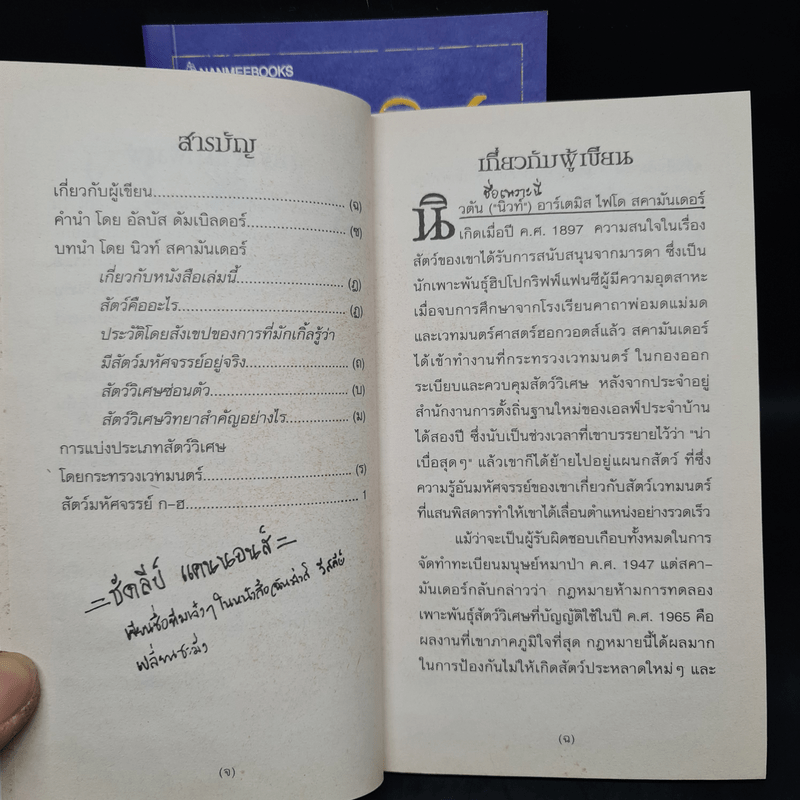 NANMEEBOOKS
สารบัญ
เกี่ยวกับผู้เขียน.......................................(ฉ)
คำนำ โดย อัลบัส ดัมเบิลดอร์......................(ช)
บทนำ โดย นิวท์ สคามันเดอร์
เกี่ยวกับหนังสือเล่มนี้.....................(ฎ)
สัตว์คืออะไร...............................(ฏ)
ประวัติโดยสังเขปของการที่มักเกิ้ลรู้ว่า
มีสัตว์มหัศจรรย์อยู่จริง....................(ถ)
สัตว์วิเศษซ่อนตัว..........................(บ)
สัตว์วิเศษวิทยาสำคัญอย่างไร...............(ม)
การแบ่งประเภทสัตว์วิเศษ
โดยกระทรวงเวทมนตร์............................(ร)
สัตว์มหัศจรรย์ ก-ฮ............................... 1
=ชัดลีย์ แคนนอนส์=
ในหนังสือ
(จ)
เกี่ยวกับผู้เขียน
ชื่อเพราะนี่
นิวตัน ("นิวท์") อาร์เตมิส ไฟโด สคามันเดอร์
เกิดเมื่อปี ค.ศ. 1897 ความสนใจในเรื่อง
สัตว์ของเขาได้รับการสนับสนุนจากมารดา ซึ่งเป็น
นักเพาะพันธุ์ฮิปโปกริฟฟ์แฟนซีผู้มีความอุตสาหะ
เมื่อจบการศึกษาจากโรงเรียนคาถาพ่อมดแม่มด
และเวทมนตร์ศาสตร์ฮอกวอตส์แล้ว สคามันเดอร์
ได้เข้าทำงานที่กระทรวงเวทมนตร์ ในกองออก
ระเบียบและควบคุมสัตว์วิเศษ หลังจากประจำอยู่
สำนักงานการตั้งถิ่นฐานใหม่ของเอลฟ์ประจำบ้าน
ได้สองปี ซึ่งนับเป็นช่วงเวลาที่เขาบรรยายไว้ว่า "น่า
เบื่อสุดๆ" แล้วเขาก็ได้ย้ายไปอยู่แผนกสัตว์ ที่ซึ่ง
ความรู้อันมหัศจรรย์ของเขาเกี่ยวกับสัตว์เวทมนตร์
ที่แสนพิสดารทำให้เขาได้เลื่อนตำแหน่งอย่างรวดเร็ว
แม้ว่าจะเป็นผู้รับผิดชอบเกือบทั้งหมดในการ
จัดทำทะเบียนมนุษย์หมาป่า ค.ศ. 1947 แต่สคา-
มันเดอร์กลับกล่าวว่า กฎหมายห้ามการทดลอง
เพาะพันธุ์สัตว์วิเศษที่บัญญัติใช้ในปี ค.ศ. 1965 คือ
ผลงานที่เขาภาคภูมิใจที่สุด กฎหมายนี้ได้ผลมาก
ในการป้องกันไม่ให้เกิดสัตว์ประหลาดใหม่ๆ และ
(ฉ)